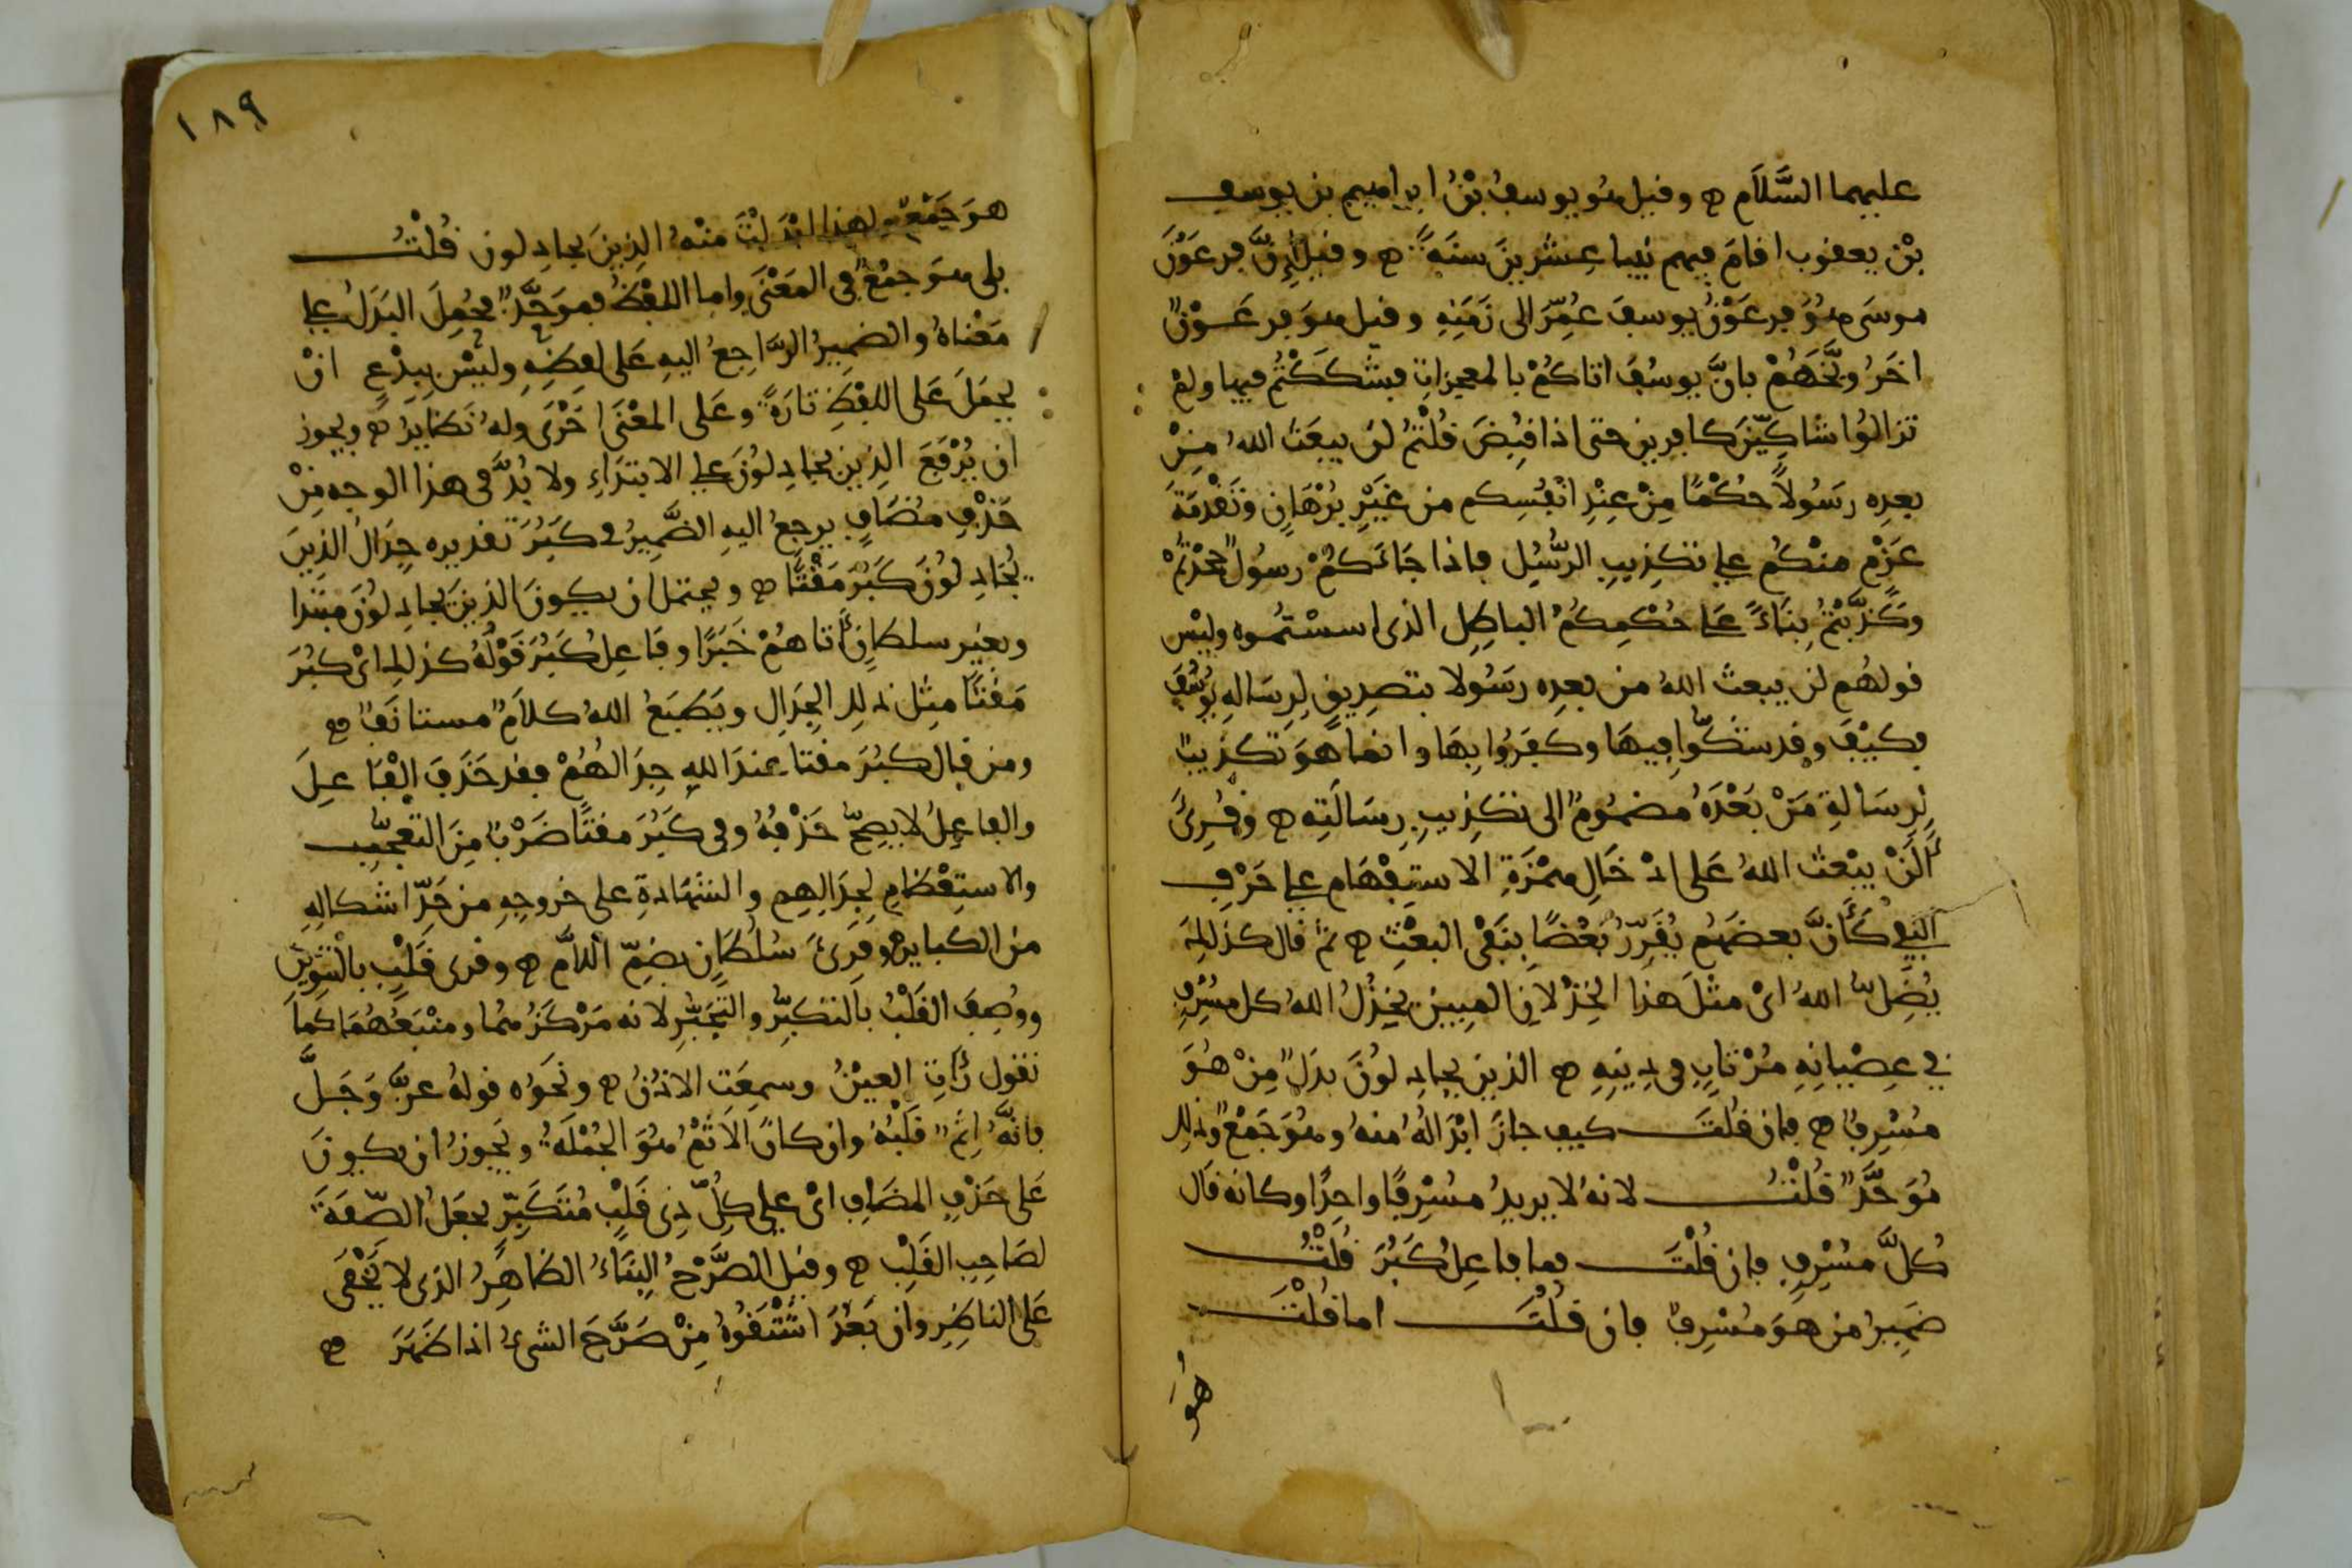 عليهما السَّلَام ه وقيل هو يوسفُ بْنُ ابراهيم بن يوسف
بْن يعقوب اقامَ فيهم نبيا عشرينَ سنَةً ه وقيل إنَّ فرعَوْنَ
موسَى هُوَ فرعَوْنُ يوسفَ عُمِّرَ الى زَمَنِهِ وقيل هو فرعَوْنٌ
اخَرُ وبَّخَهُمْ بانَّ يوسُفَ اتاكُمْ بالمعجزاتِ فشكَكْتُم فيها ولمْ
تزالوُا شاكِّينَ كافرين حتى اذا قُبِضَ قُلْتُمْ لن يبعَثَ اللهُ مِنْ
بعدِه رسَوُلاً حُكْمًا مِنْ عِنْدِ انْفُسِكم من غَيْرِ بُرْهَانٍ وتَقْدِمَةَ
عَزْمٍ منْكُم على تكذِيبِ الرُّسُلِ فاذا جَاءَكُمْ رسُولٌ جحَدْتُمْ
وكَذَّبْتُمْ بِنَاءً عَلى حُكْمِكُمُ الباطِلِ الذى اسسْتُموه وليْس
قولهُم لن يبعثَ اللهُ من بعدِه رسَوُلا بتصدِيقٍ لِرِسَالةِ يُوسُفَ
فكيْفَ وقد شكُّوا فيهَا وكفَرُوا بِهَا وانما هُوَ تكذيبٌ
لِرِسَالةِ مَنْ بَعْدَهُ مضمُومٌ الى تكذِيبِ رِسَالَتِه ه وقُرِئَ
أَلَنْ يبْعثَ اللهُ عَلى ادْخَالِ همْزَةِ الاستِفْهَامِ على حَرْفِ
النَّفْىِ كَأنَّ بعضَهُم يُقَرِّرُ بَعْضًا بِنَفْىِ البعْثِ ه ثمَّ قال كذلكَ
يُضِلُّ اللهُ اىْ مثْلَ هذا الخِذْلانِ المبِينِ يخْذُلُ اللهُ كل مسْرِفٍ
في عِصْيانِهِ مُرْتابٍ فى دِينِهِ ه الذين يجادِلوُنَ بدَلٌ مِنْ هُوَ
مُسْرِفٌ ه فان قُلتَ كيف جازَ ابْدَالُهُ منهُ وهُوَ جَمْعٌ وذلك
مُوَحَّدٌ قُلْتُ لانهُ لا يريدُ مسْرِفًا واحِدًا وكانه قال
كُلَّ مسْرِفٍ فان قُلْتَ فما فاعِلُ كَبُرَ قُلْتُ
ضَمِيرُ من هَوَ مُسْرِفٌ فان قُلْتَ اما قُلْتَ
هُوَ
١٨٩
هوَ جَمْعٌ ولهذا ابْدَلْتَ منْهُ الذِينَ يجادِلون قُلْتُ
بلى هو جمْعٌ فى المعْنَى واما اللفْظُ فموَحَّدٌ فحُمِلَ البَدَلُ على
معْناهُ والضميرُ الرَّاجِعُ اليهِ عَلى لفظِهِ وليْسَ ببِدْعٍ انْ
يحمَلَ عَلى اللفْظِ تارَةً وعَلى المعْنَى اخْرَى ولهُ نَظايرُ ه ويجوز
ان يُرْفَعَ الذِينَ يجادِلوُنَ على الابتدَاءِ ولا بُدَّ فى هذا الوجهِ مِنْ
حَذْفِ مضَافٍ يرجعُ اليهِ الضَّمِيرُ فى كَبُرَ تقديره جِدَالُ الذِينَ
يُجَادِلوُنَ كَبُرَ مقْتًا ه ويحتمل ان يكونَ الذِينَ يجادِلوُنَ مبْتدا
وبغير سلطانٍ أتاهُمْ خَبَرًا وفَاعِلُ كَبُرَ قَوْلُهُ كذلك اىْ كبُرَ
مَقْتًا مِثْل ذلك الجِدَالِ ويَطْبَعُ اللهُ كلاَمٌ مستانَفٌ ه
ومن قال كبُرَ مقتا عندَ اللهِ جِدَالهُمْ فقد حَذَفَ الْفَاعِلَ
والفاعِلُ لا يصِحُّ حَذْفُهُ وفى كَبُرَ مقتًا ضَرْبٌ مِنَ التعَجُّبِ
والاستِعْظامِ لِجِدَالِهِم والشهَادةِ على خروجِهِ من حَدِّ اشكالِهِ
من الكباير ه وقرِئَ سُلُطَانٍ بضِمِّ اللَّامِ ه وقرى قَلْبٍ بالتنْوِينِ
ووُصِفَ القَلْبُ بالتكبُّرِ والتَّجَبُّرِ لانه مَرْكزُهما ومنْبَعُهُمَا كَما
تقول رَأَتِ العيْنُ وسمِعَت الاذُنُ ه ونحوُه قولهُ عزَّ وَجَلَّ
فانَّهُ آثِمٌ قلْبُهُ وان كانَ الآثمُ هُوَ الجُمْلَةُ ويَجوزُ ان يكونَ
عَلى حَذْفِ المضَافِ اىْ على كلِّ ذِى قَلْبٍ مُتَكَبِّرٍ بجعْلِ الصِّفَةَ
لصَاحِبِ القَلْبِ ه وقيل الصَّرْحُ البِنَاءُ الظاهِرُ الذى لا يَخْفَى
عَلى الناظِرِ وان بَعُدَ اشْتَقُّوهُ مِنْ صَرَّحَ الشىءُ اذا ظَهَرَ ه